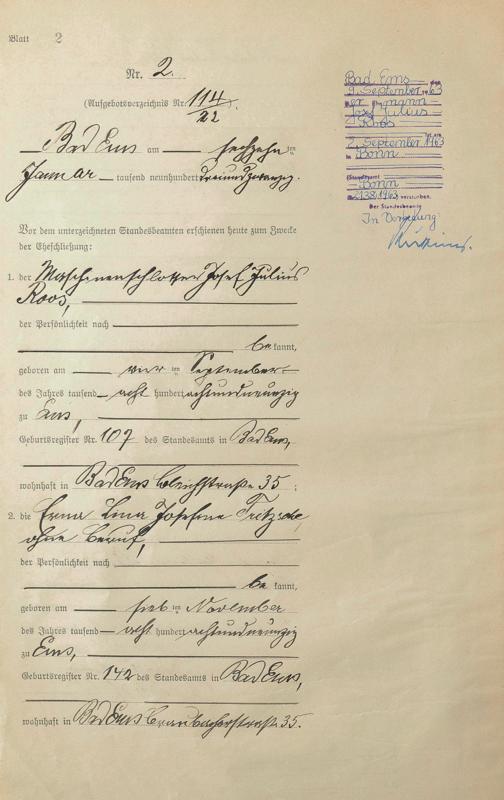 Blatt 2
Nr. 2.
(Aufgebotsverzeichnis Nr. 114/22).
Bad Ems am sechzehn ten
Januar tausend neunhundert dreiundzwanzig.
Vor dem unterzeichneten Standesbeamten erschienen heute zum Zwecke
der Eheschließung:
1. der Maschinenschlosser Josef Julius
Roos,
der Persönlichkeit nach
be kannt,
geboren am vier ten September
des Jahres tausend acht hundert achtundneunzig
zu Ems,
Geburtsregister Nr. 107 des Standesamts in Bad Ems,
wohnhaft in Bad Ems Bleichstraße 35;
2. die Erna Lina Josefine Fritzsche,
ohne Beruf,
der Persönlichkeit nach
be kannt,
geboren am sieb ten November
des Jahres tausend acht hundert achtundneunzig
zu Ems,
Geburtsregister Nr. 142 des Standesamts in Bad Ems,
wohnhaft in Bad Ems Braubacherstraße 35.
Bad Ems, den
9. September 1963
Der Ehemann
Josef Julius
Roos
ist am
2. September 1963
in Bonn
(Standesamt
Bonn
Nr. 2138/1963) verstorben.
Der Standesbeamte
In Vertretung